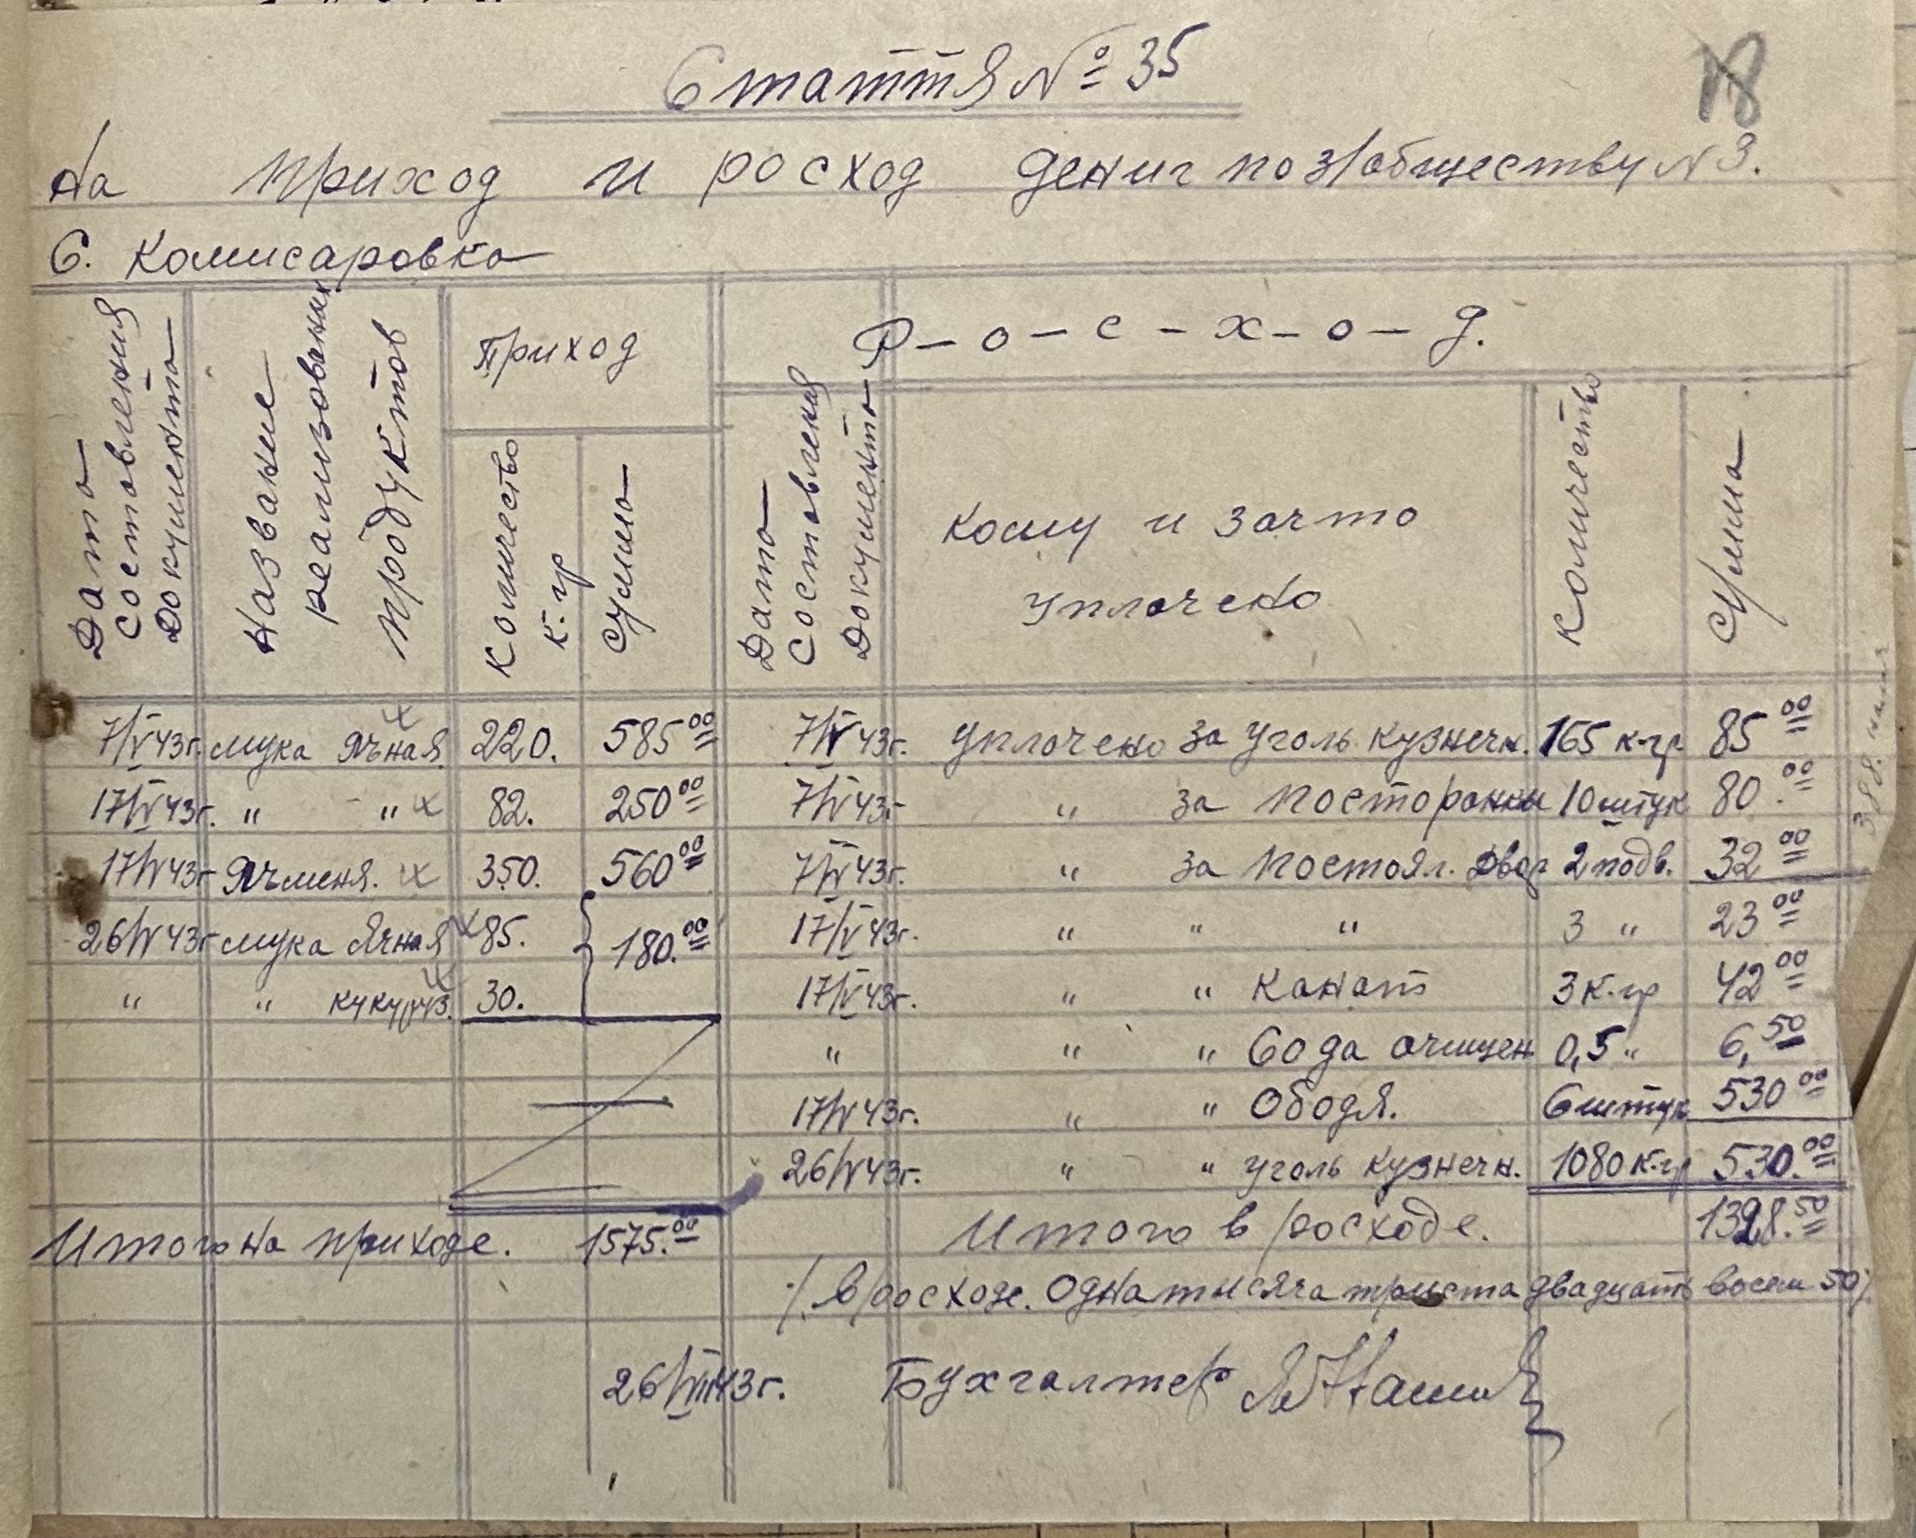 Стаття № 35
18
На приход и росход дениг по з/обществу № 3.
С. Комисаровка
Дата составления документа
Название реализованих продуктов
Приход
Количество к.гр
Сумма
Р-о-с-х-о-д.
Дата составления документа
кому и зачто уплочено
Количество
Сумма
7/V 43г. мука ячная 220. 585 00 7/V 43г. уплочено за уголь кузнечн. 165 к.гр 85 00
17/V 43г. " " 82. 250 00 7/V 43г. " за посторонки 10 штук 80.00
17/V 43г ячменя. 350. 560 00 7/V 43г. " за постоял. двор 2 подв. 32 00
26/V 43г мука ячная 85. 180.00 17/V 43г. " " " 3 " 23 00
" " кукуруз. 30. 17/V 43г. " " Канат 3 к.гр 42 00
" " " Сода очищен 0,5 " 6,50
17/V 43г. " " Ободя. 6 штук 530 00
26/V 43г. " " уголь кузнечн. 1080 к.гр 530.00
Итого на приходе. 1575.00 Итого в росходе. 1328.50
/. в росходе. Одна тисяча триста двадцать восем 50/
26/VIII 43г. Бухгалтер